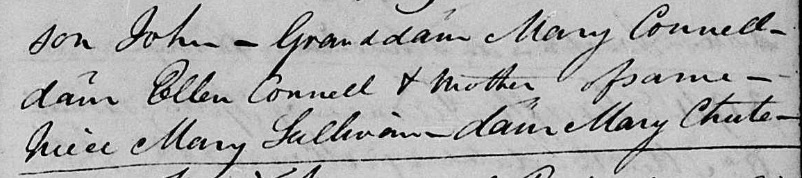 son John - Granddam Mary Connell -
dam Ellen Connell & Mother of same -
Niece Mary Sullivan - dam Mary Chute -